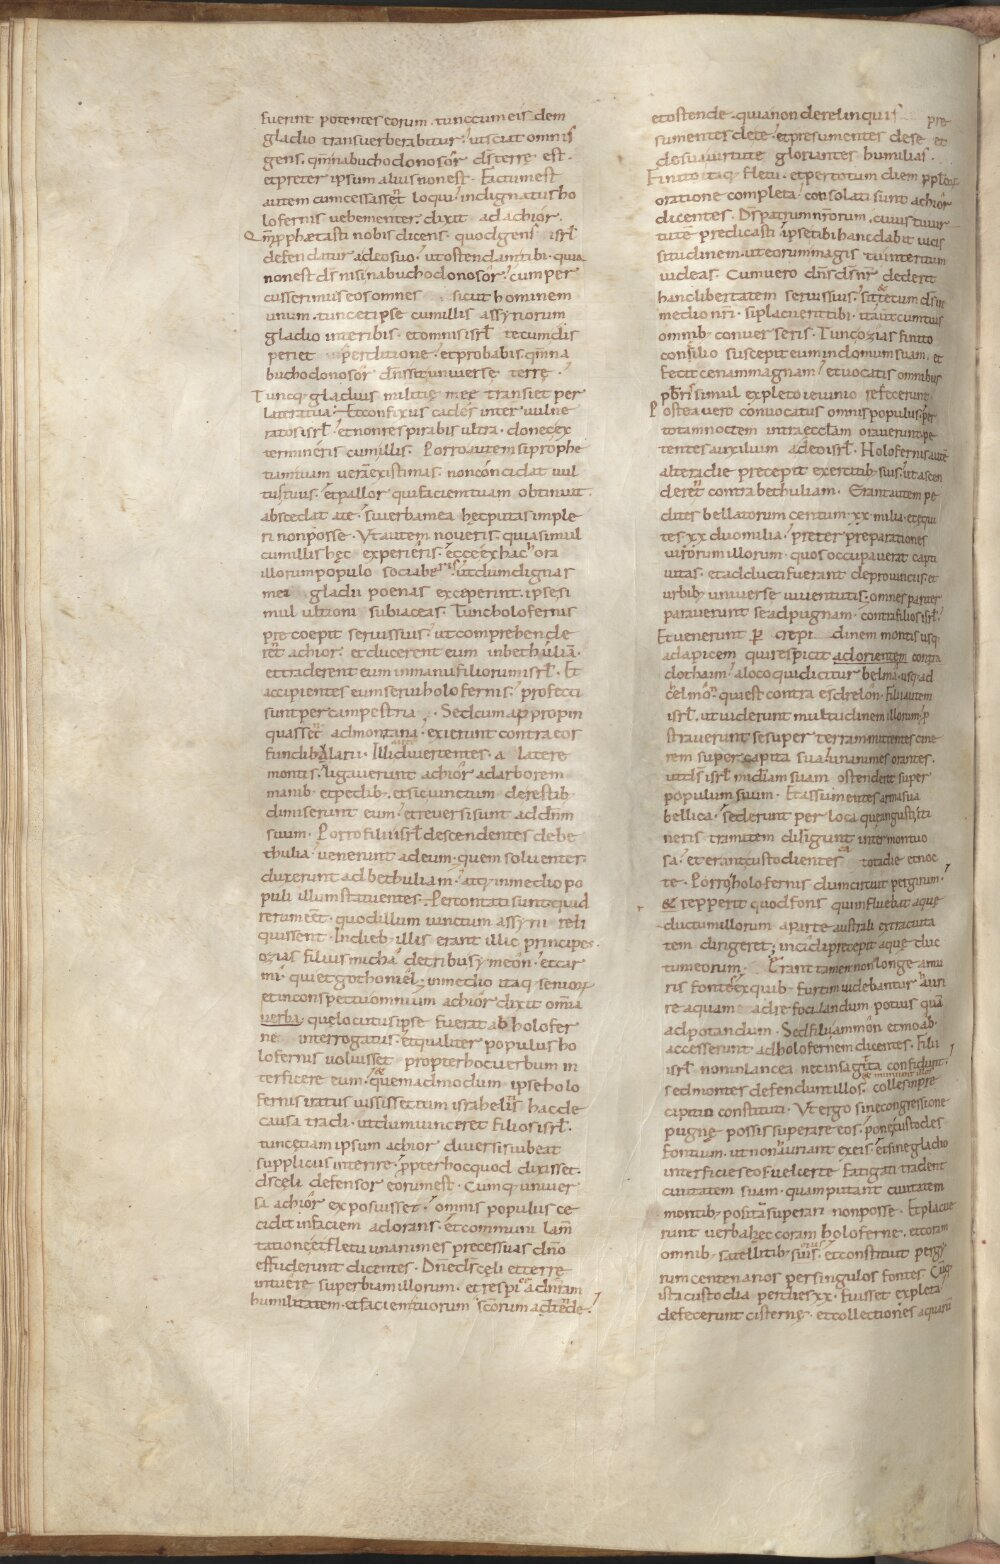 fuerint potentes eorum . tunc cum eis dem
gladio transverberabitur . ut sciat omnis
gens . qm̄ nabuchodonosor ds̄ terrę est .
et preter ipsum alius non est . Factum est
autem cum cessasset loqui . indignatus ho
lofernis vehementer . dixit ad achior .
Qm̄ pphætasti nobis dicens . quod gens isrl̄
defendatur a deo suo . ut ostendam tibi . quia
non est ds̄ nisi nabuchodonosor . cum per
cusserimus eos omnes sicut hominem
unum . tunc et ipse cum illis assyriorum
gladio interibis . et omnis isrl̄ tecum dis
periet perditione . et probabis qm̄ na
buchodonosor dn̄s sit universe terrę .
Tuncq; gladius militię meę transiet per
latera tua . Et confixus cades inter vulne
ratos isrl̄ . et non respirabis ultra . donec ex
termineris cum illis . Porro autem si prophe
tiam tuam veram existimas . non concidat vul
tus tuus . et pallor qui faciem tuam obtinuit .
abscedat a te . si verba mea hęc putas imple
ri non posse . Ut autem noveris . quia simul
cum illis hęc experieris . ecce ex hac hora
illorum populo sociaberis . ut dum dignas
mei gladii poenas exceperint . ipse si
mul ultioni subiaceas . Tunc holofernis
precoepit servis suis . ut comprehende
rent achior . et ducerent eum in bethulia .
et traderent eum in manu filiorum isrl̄ . Et
accipientes eum servi holofernis . profecti
sunt per campestria . Sed cum appropin
quassent ad montana . exierunt contra eos
fundibalarii . Illi divertentes . a latere
montis . ligaverunt achior ad arborem
manib; et pedib; et sic vinctum de restib;
dimiserunt eum . et reversi sunt ad dn̄m
suum . Porro filii isrl̄ descendentes de be
thulia . venerunt ad eum . quem solventes .
duxerunt ad bethuliam . atq; in medio po
puli illum statuentes . Percontati sunt . quid
rerum eēt . quod illum vinctum assyrii reli
quissent . In dieb; illis erant illic principes .
ozias filius micha de tribu symeon . et car
mi . qui et gothoniel . in medio itaq; seniorum
et in conspectu omnium achior dixit omnia
verba . quę locutus ipse fuerat ab holofer
ne interrogatus . et qualiter populus ho
lofernis voluisset propter hoc verbum in
terficere eum . et quemadmodum ipse holo
fernis iratus iussisset eum israhelitis hac de
causa tradi . ut dum vinceret filios isrl̄ .
tunc etiam ipsum achior diversis iubeat
suppliciis interire . ppter hoc quod dixisset .
ds̄ cęli defensor eorum est . Cumq; univer
sa achior exposuisset . omnis populus ce
cidit in faciem adorans . et communi lam̄
tatione et fletu unanimes preces suas dn̄o
effuderunt dicentes . Dn̄e ds̄ cęli et terrę
intuere superbiam illorum . et respice ad nr̄am
humilitatem . et faciem tuorum scōrum adtende .
et ostende . quia non derelinquis pre
sumentes de te . et presumentes de se et
de sua virtute gloriantes humilias .
Finito itaq; fletu . et per totum diem ppl̄orum
oratione completa . consolati sunt achior
dicentes . Ds̄ patrum nr̄orum . cuius tu vir
tutē predicasti ipse tibi hanc dabit vicis
situdinem . ut eorum magis tu interitum
videas . Cum vero dn̄s ds̄ nr̄ dederit
hanc libertatem servis suis . sit et tecum ds̄ in
medio nr̄i . si placuerit tibi . ita ut cum tuis
omnib; converseris . Tunc ozias finito
consilio suscepit eum in domum suam . et
fecit cenam magnam . et vocatis omnibus
pbr̄is simul expleto ieiunio refecerunt .
Postea vero convocatus omnis populus . per
totam noctem intra ecclam oraverunt . pe
tentes auxilium a deo isrl̄ . Holofernis autē
altera die precepit exercitib; suis . ut ascen
derent contra bethuliam . Erant autem pe
dites bellatorum centum . xx . milia . et equi
tes xx duo milia . preter preparationes
virorum illorum . quos occupaverat capti
vitas . et adducti fuerant de provinciis . et
urbib; universe iuventutis . omnes pariter
paraverunt se ad pugnam . contra filios isrl̄ .
Et venerunt p crepidinem montis usq;
ad apicem qui respicit ad orientem contra
dothaim . a loco qui dicitur belma . usq; ad
celmon . qui est contra esdrelon . Filii autem
isrl̄ . ut viderunt multitudinem illorum . p
straverunt se super terram mittentes cine
rem super capita sua . unanimes orantes .
ut ds̄ isrl̄ mīdiam suam ostenderet super
populum suum . Et assumentes arma sua
bellica . sederunt per loca que angusti iti
neris tramitem dirigunt inter montuo
sa . et erant custodientes tota die et noc
te . Porro holofernis dum circuit per girum .
& repperit quod fons qui influebat aquę
ductum illorum a parte australi extra civita
tem dirigeret . incidi precepit aquę duc
tum eorum . Erant tamen non longe a mu
ris fontes ex quib; furtim videbantur auri
re aquam ad refocilandum potius quā
ad potandum . Sed filii ammon et moab .
accesserunt ad holofernem dicentes . Filii
isrl̄ non in lancea nec in sagitta confidunt .
sed montes defendunt illos . et muniunt illos colles in pre
cipitio constituti . Ut ergo sine congressione
pugnę possis superare eos . pone custodes
fontium . ut non auriant ex eis . et sine gladio
interficies eos vel certe fatigati tradent
civitatem suam . quam putant civitatem
montib; positā superari non posse . Et placue
runt verba hęc coram holoferne . et coram
omnib; satellitib; suis . et constituit per gy
rum centenarios per singulos fontes . Cūq;
ista custodia per dies xx . fuisset expleta .
defecerunt cisternę . et collectiones aquarū